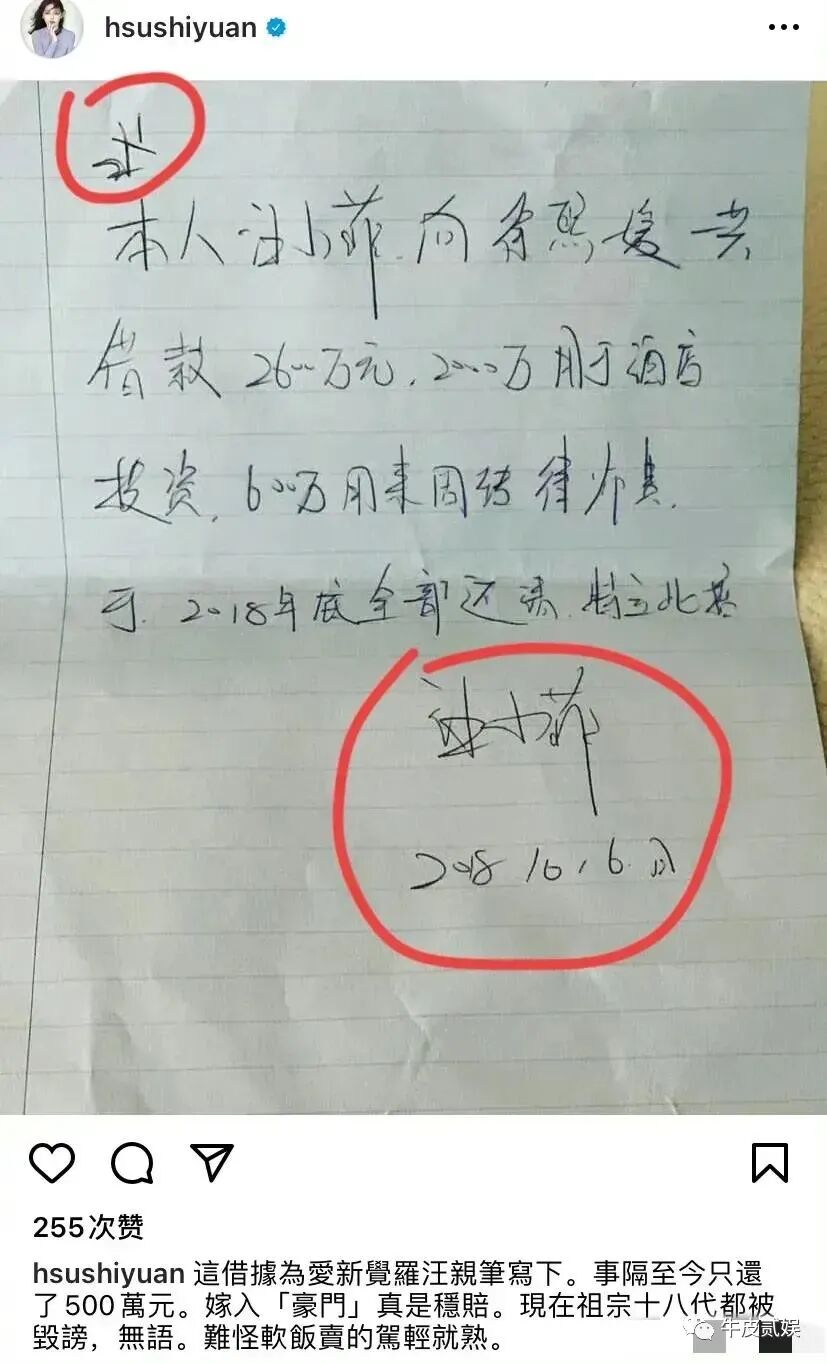 hsushiyuan
本人汪小菲.向徐熙媛共
借款2600万元,2000万用于酒店
投资,600万用来周转律师费.
于.2018年底全部还清.特立此据
汪小菲
2018 10, 6. 日
255次赞
hsushiyuan 這借據為愛新覺羅汪親筆寫下。事隔至今只還
了500萬元。嫁入「豪門」真是穩賠。現在祖宗十八代都被
毀謗，無語。難怪軟飯賣的駕輕就熟。
牛皮贰娱